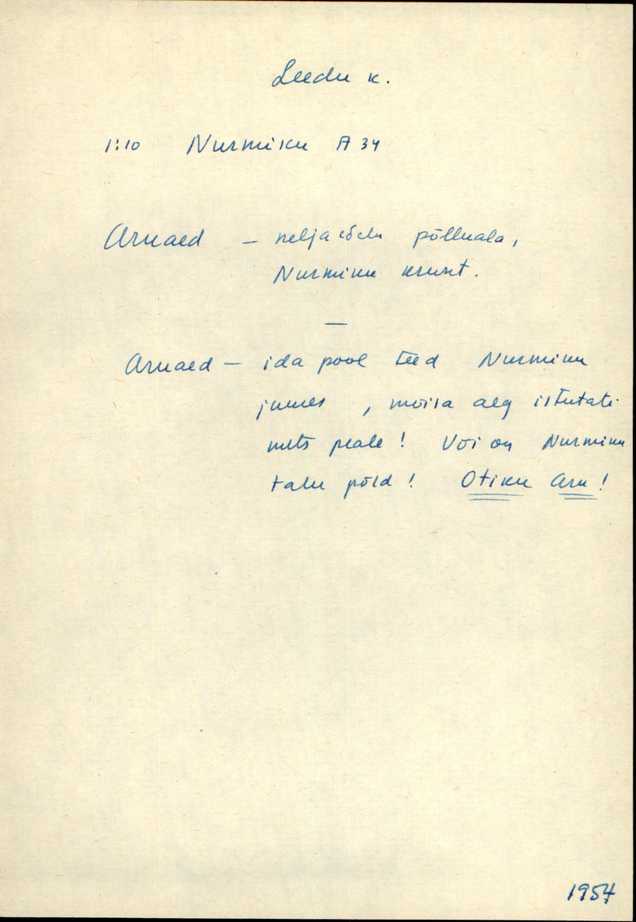 Leedu k.
1:10 Nurmiku A 34
Aruaed – põlluala,
Nurmiku krunt.
—
Aruaed – ida pool teed Nurmiku
juures, mõisa aeg istutati
mets peale! Või on Nurmiku
talu põld! Otiku Aru!
1954